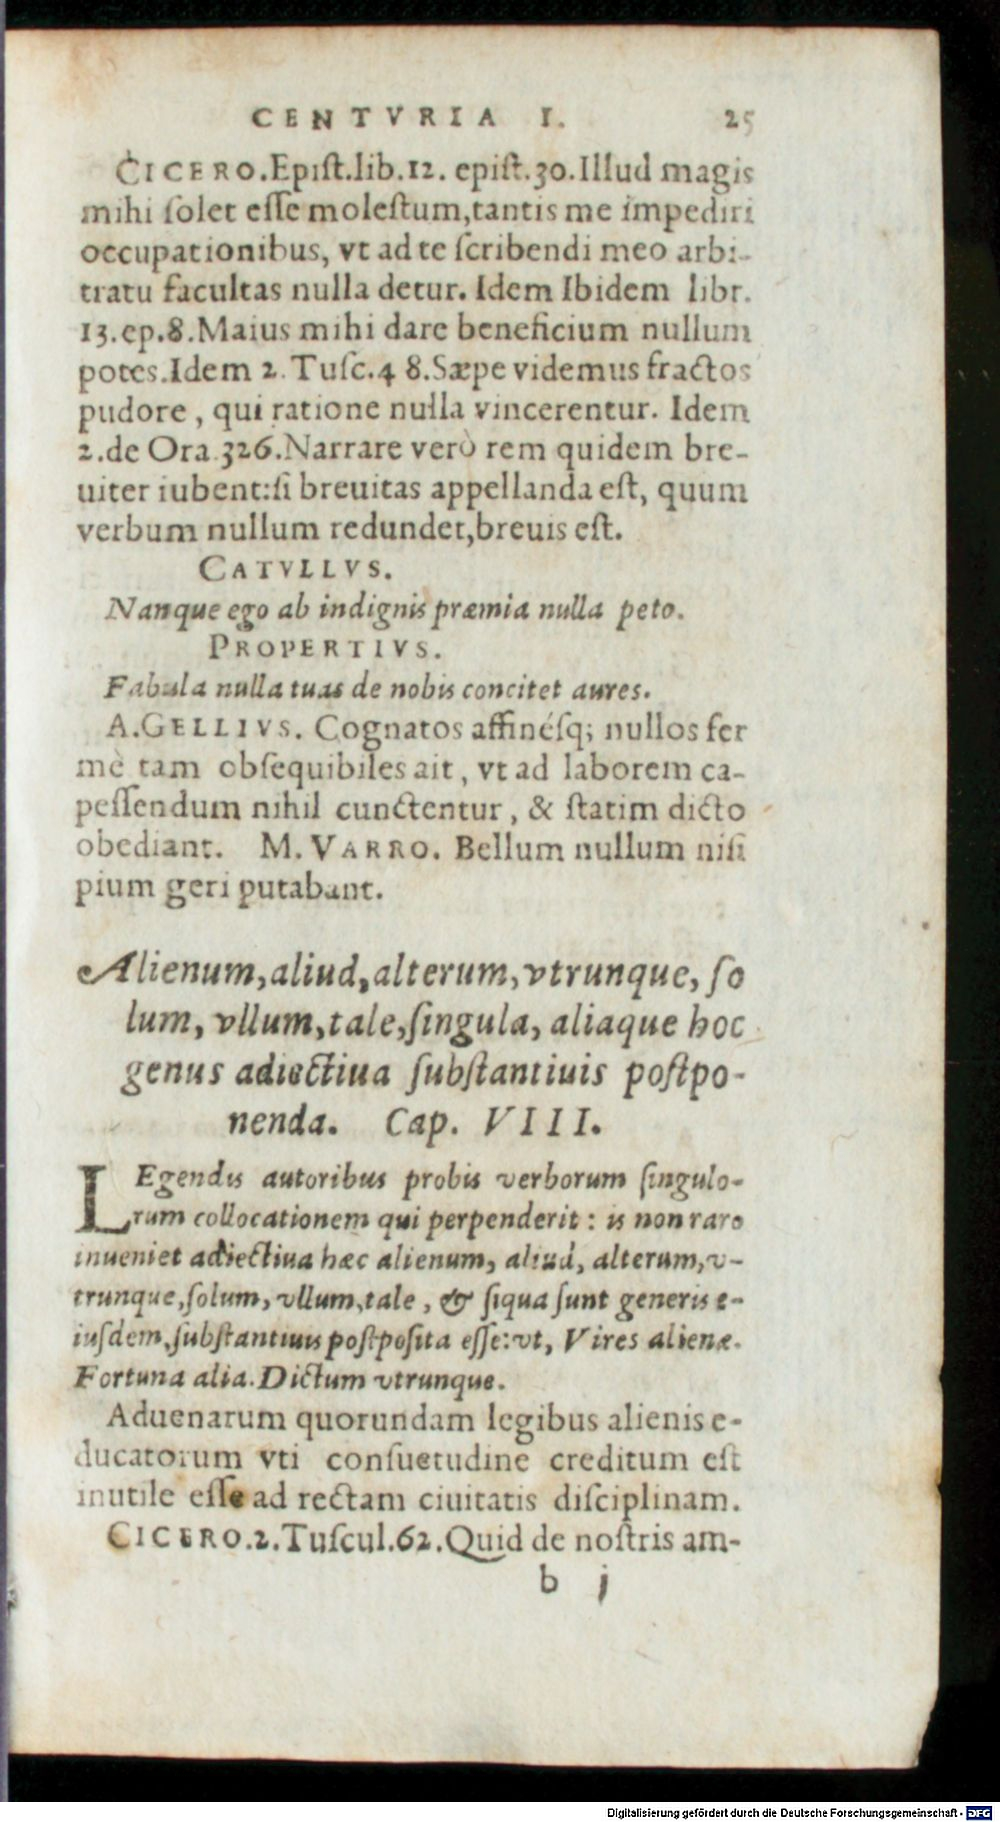 CENTVRIA I. 25
CICERO.Epiſt.lib.12. epiſt.30.Illud magis
mihi ſolet eſſe moleſtum,tantis me impediri
occupationibus, vt ad te ſcribendi meo arbi-
tratu facultas nulla detur. Idem Ibidem libr.
13.ep.8.Maius mihi dare beneficium nullum
potes.Idem 2. Tuſc.4 8.Sæpe videmus fractos
pudore , qui ratione nulla vincerentur. Idem
2.de Ora.326.Narrare verò rem quidem bre-
uiter iubent:ſi breuitas appellanda eſt, quum
verbum nullum redundet,breuis eſt.
CATVLLVS.
Nanque ego ab indignis præmia nulla peto.
PROPERTIVS.
Fabula nulla tuas de nobis concitet aures.
A.GELLIVS. Cognatos affinéſq; nullos fer
mè tam obſequibiles ait, vt ad laborem ca-
peſſendum nihil cunctentur, & ſtatim dicto
obediant. M. VARRO. Bellum nullum niſi
pium geri putabant.
Alienum,aliud,alterum,vtrunque, ſo
lum, vllum,tale,ſingula, aliaque hoc
genus adiectiua ſubſtantiuis poſtpo-
nenda. Cap. VIII.
LEgendis autoribus probis verborum ſingulo-
rum collocationem qui perpenderit : is non raro
inueniet adiectiua hæc alienum, aliud, alterum,v-
trunque,ſolum, vllum,tale, & ſiqua ſunt generis e-
iuſdem,ſubſtantiuis poſtpoſita eſſe:vt, Vires alienæ.
Fortuna alia.Dictum vtrunque.
Aduenarum quorundam legibus alienis e-
ducatorum vti conſuetudine creditum eſt
inutile eſſe ad rectam ciuitatis diſciplinam.
CICERO.2.Tuſcul.62.Quid de noſtris am-
b j
Digitalisierung gefördert durch die Deutsche Forschungsgemeinschaft - DFG